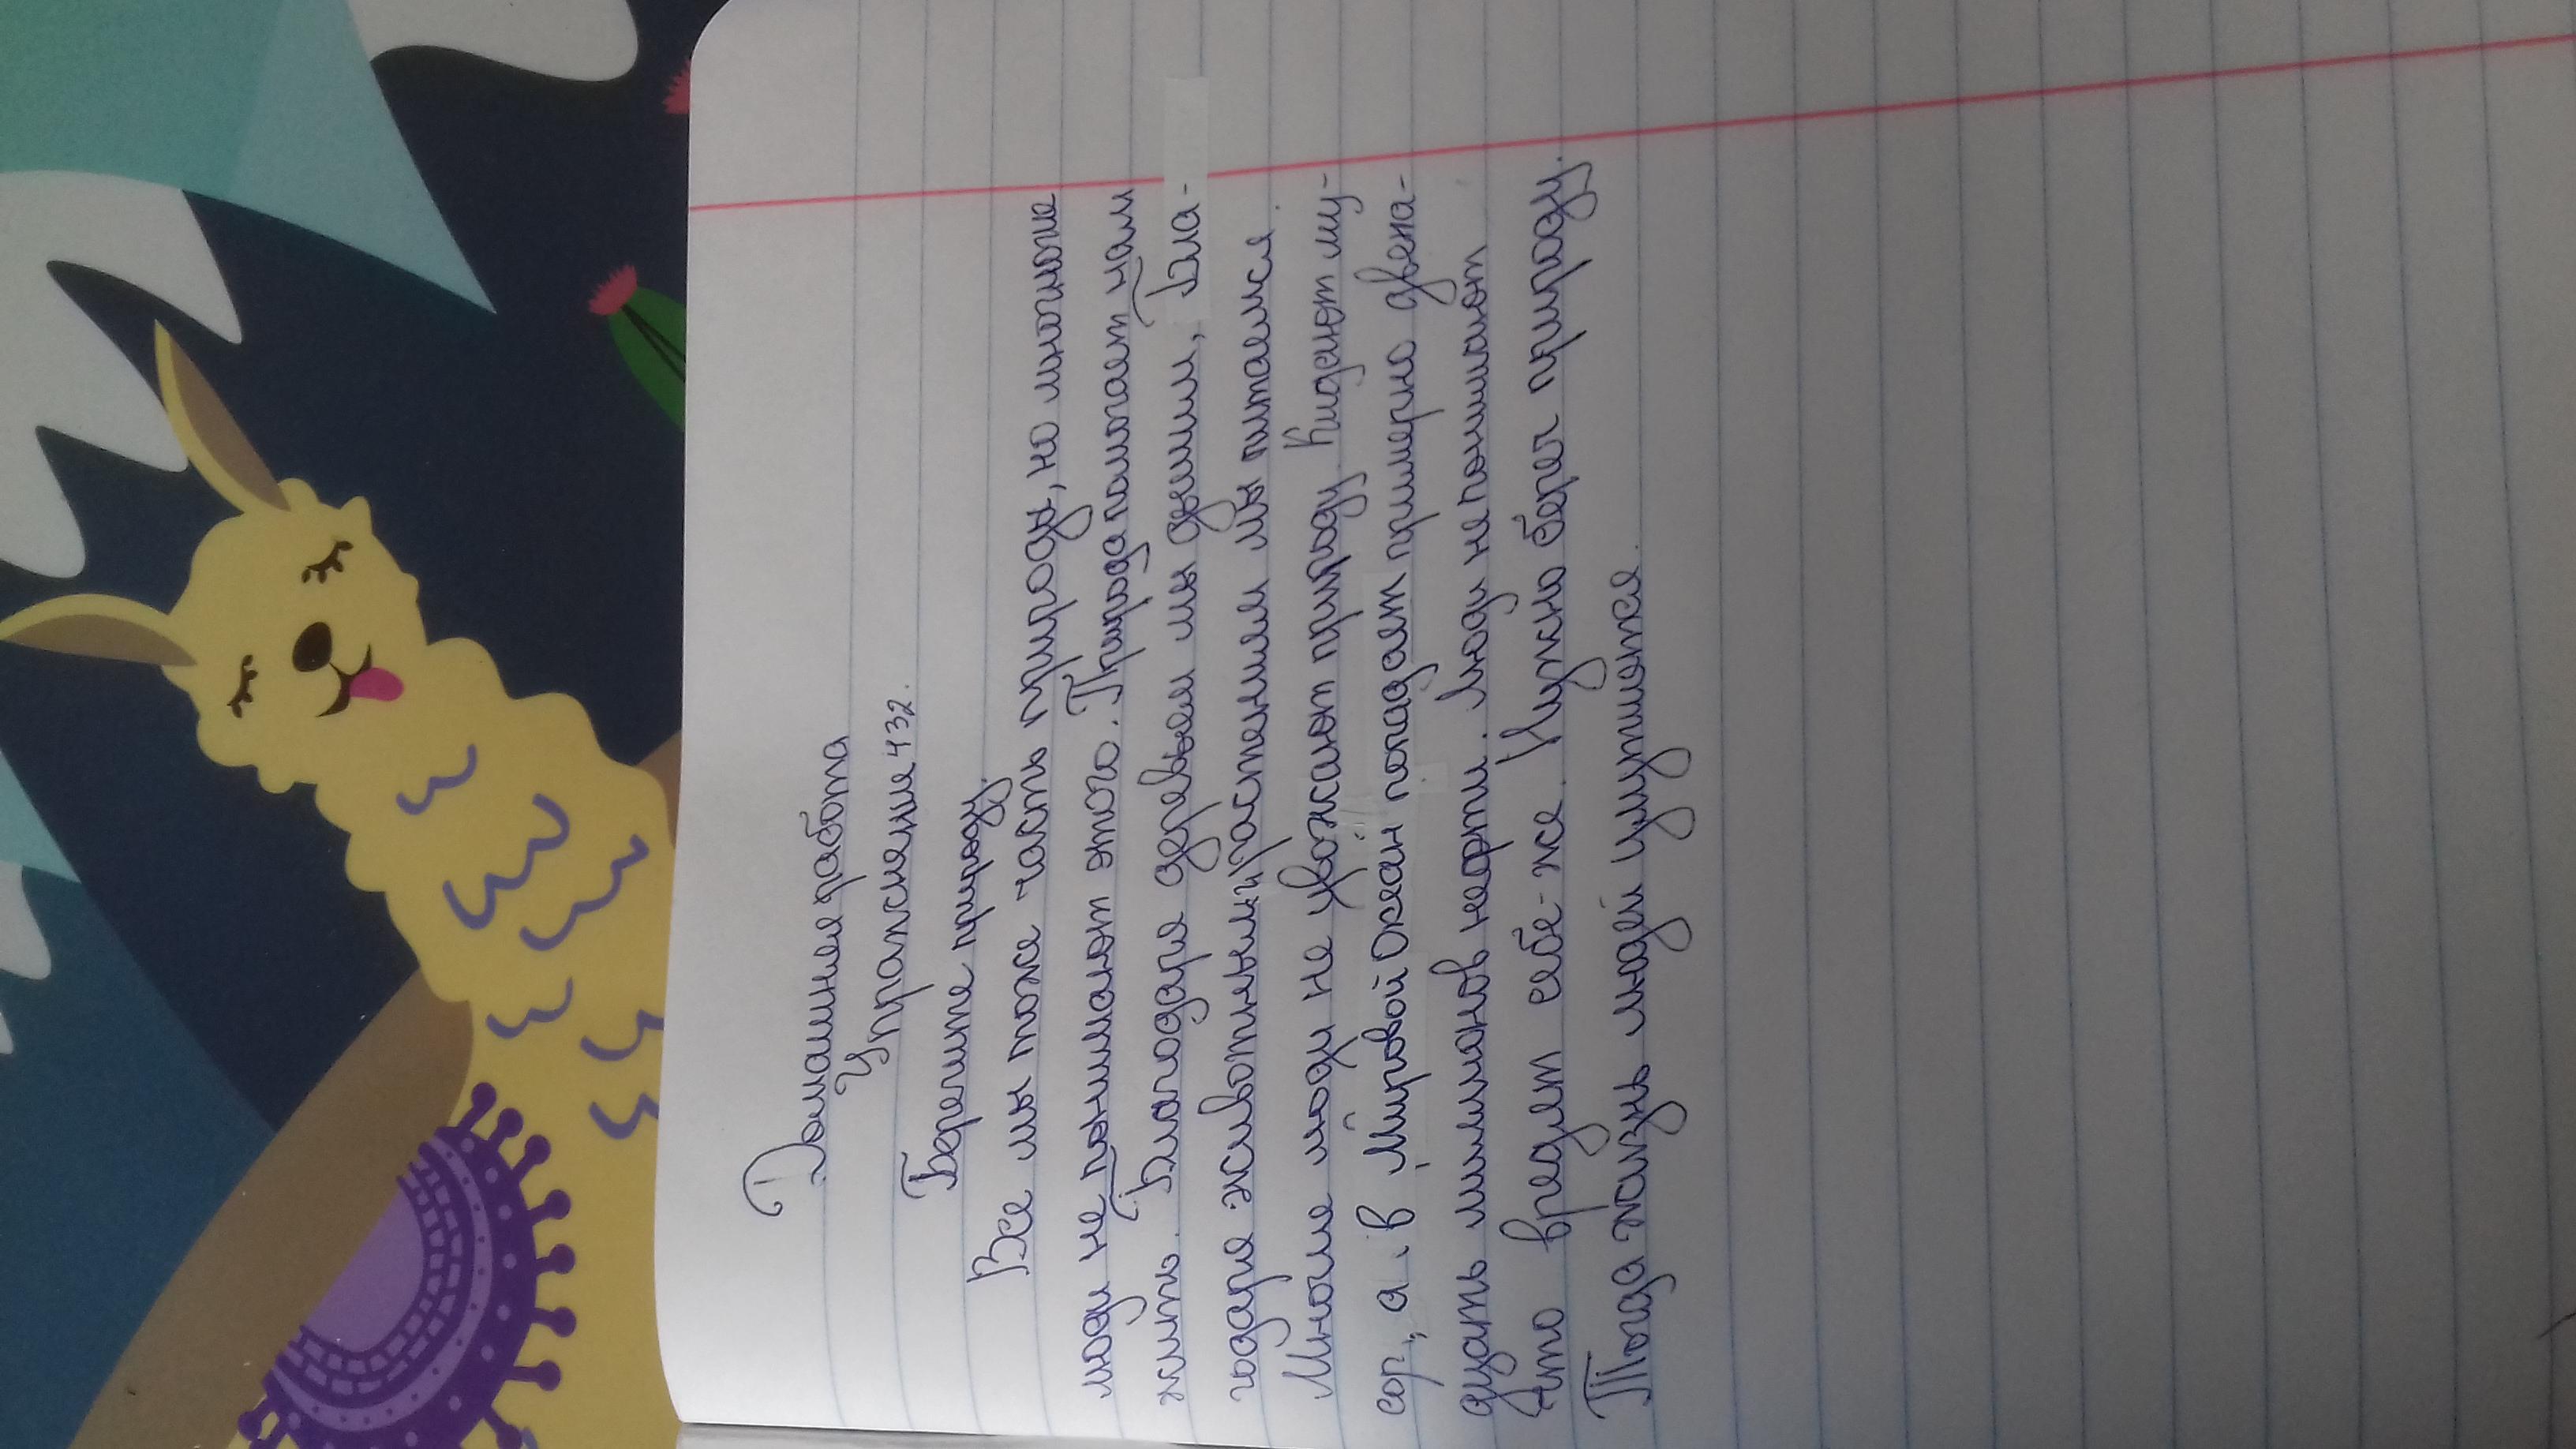 Домашняя работа
Упражнение 432.
Берегите природу.
Все мы тоже часть природы, но многие
люди не понимают этого. Природа помогает нам
жить. Благодаря деревьям мы дышим, бла-
годаря животным и растениям мы питаемся.
Многие люди не уважают природу. Кидают му-
сор, а в Мировой Океан попадает примерно двена-
дцать миллионов нефти. Люди не понимают
что вредят себе-же. Нужно береч природу.
Тогда жизнь людей улутшится.